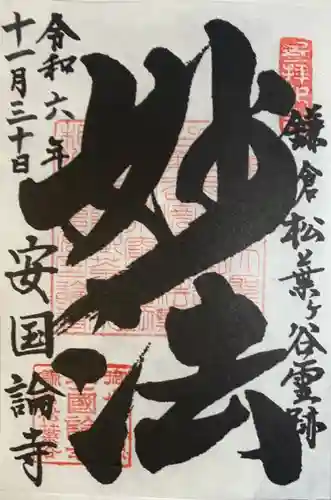 鎌倉松葉ヶ谷霊跡
妙法
令和六年
十一月三十日
安国論寺